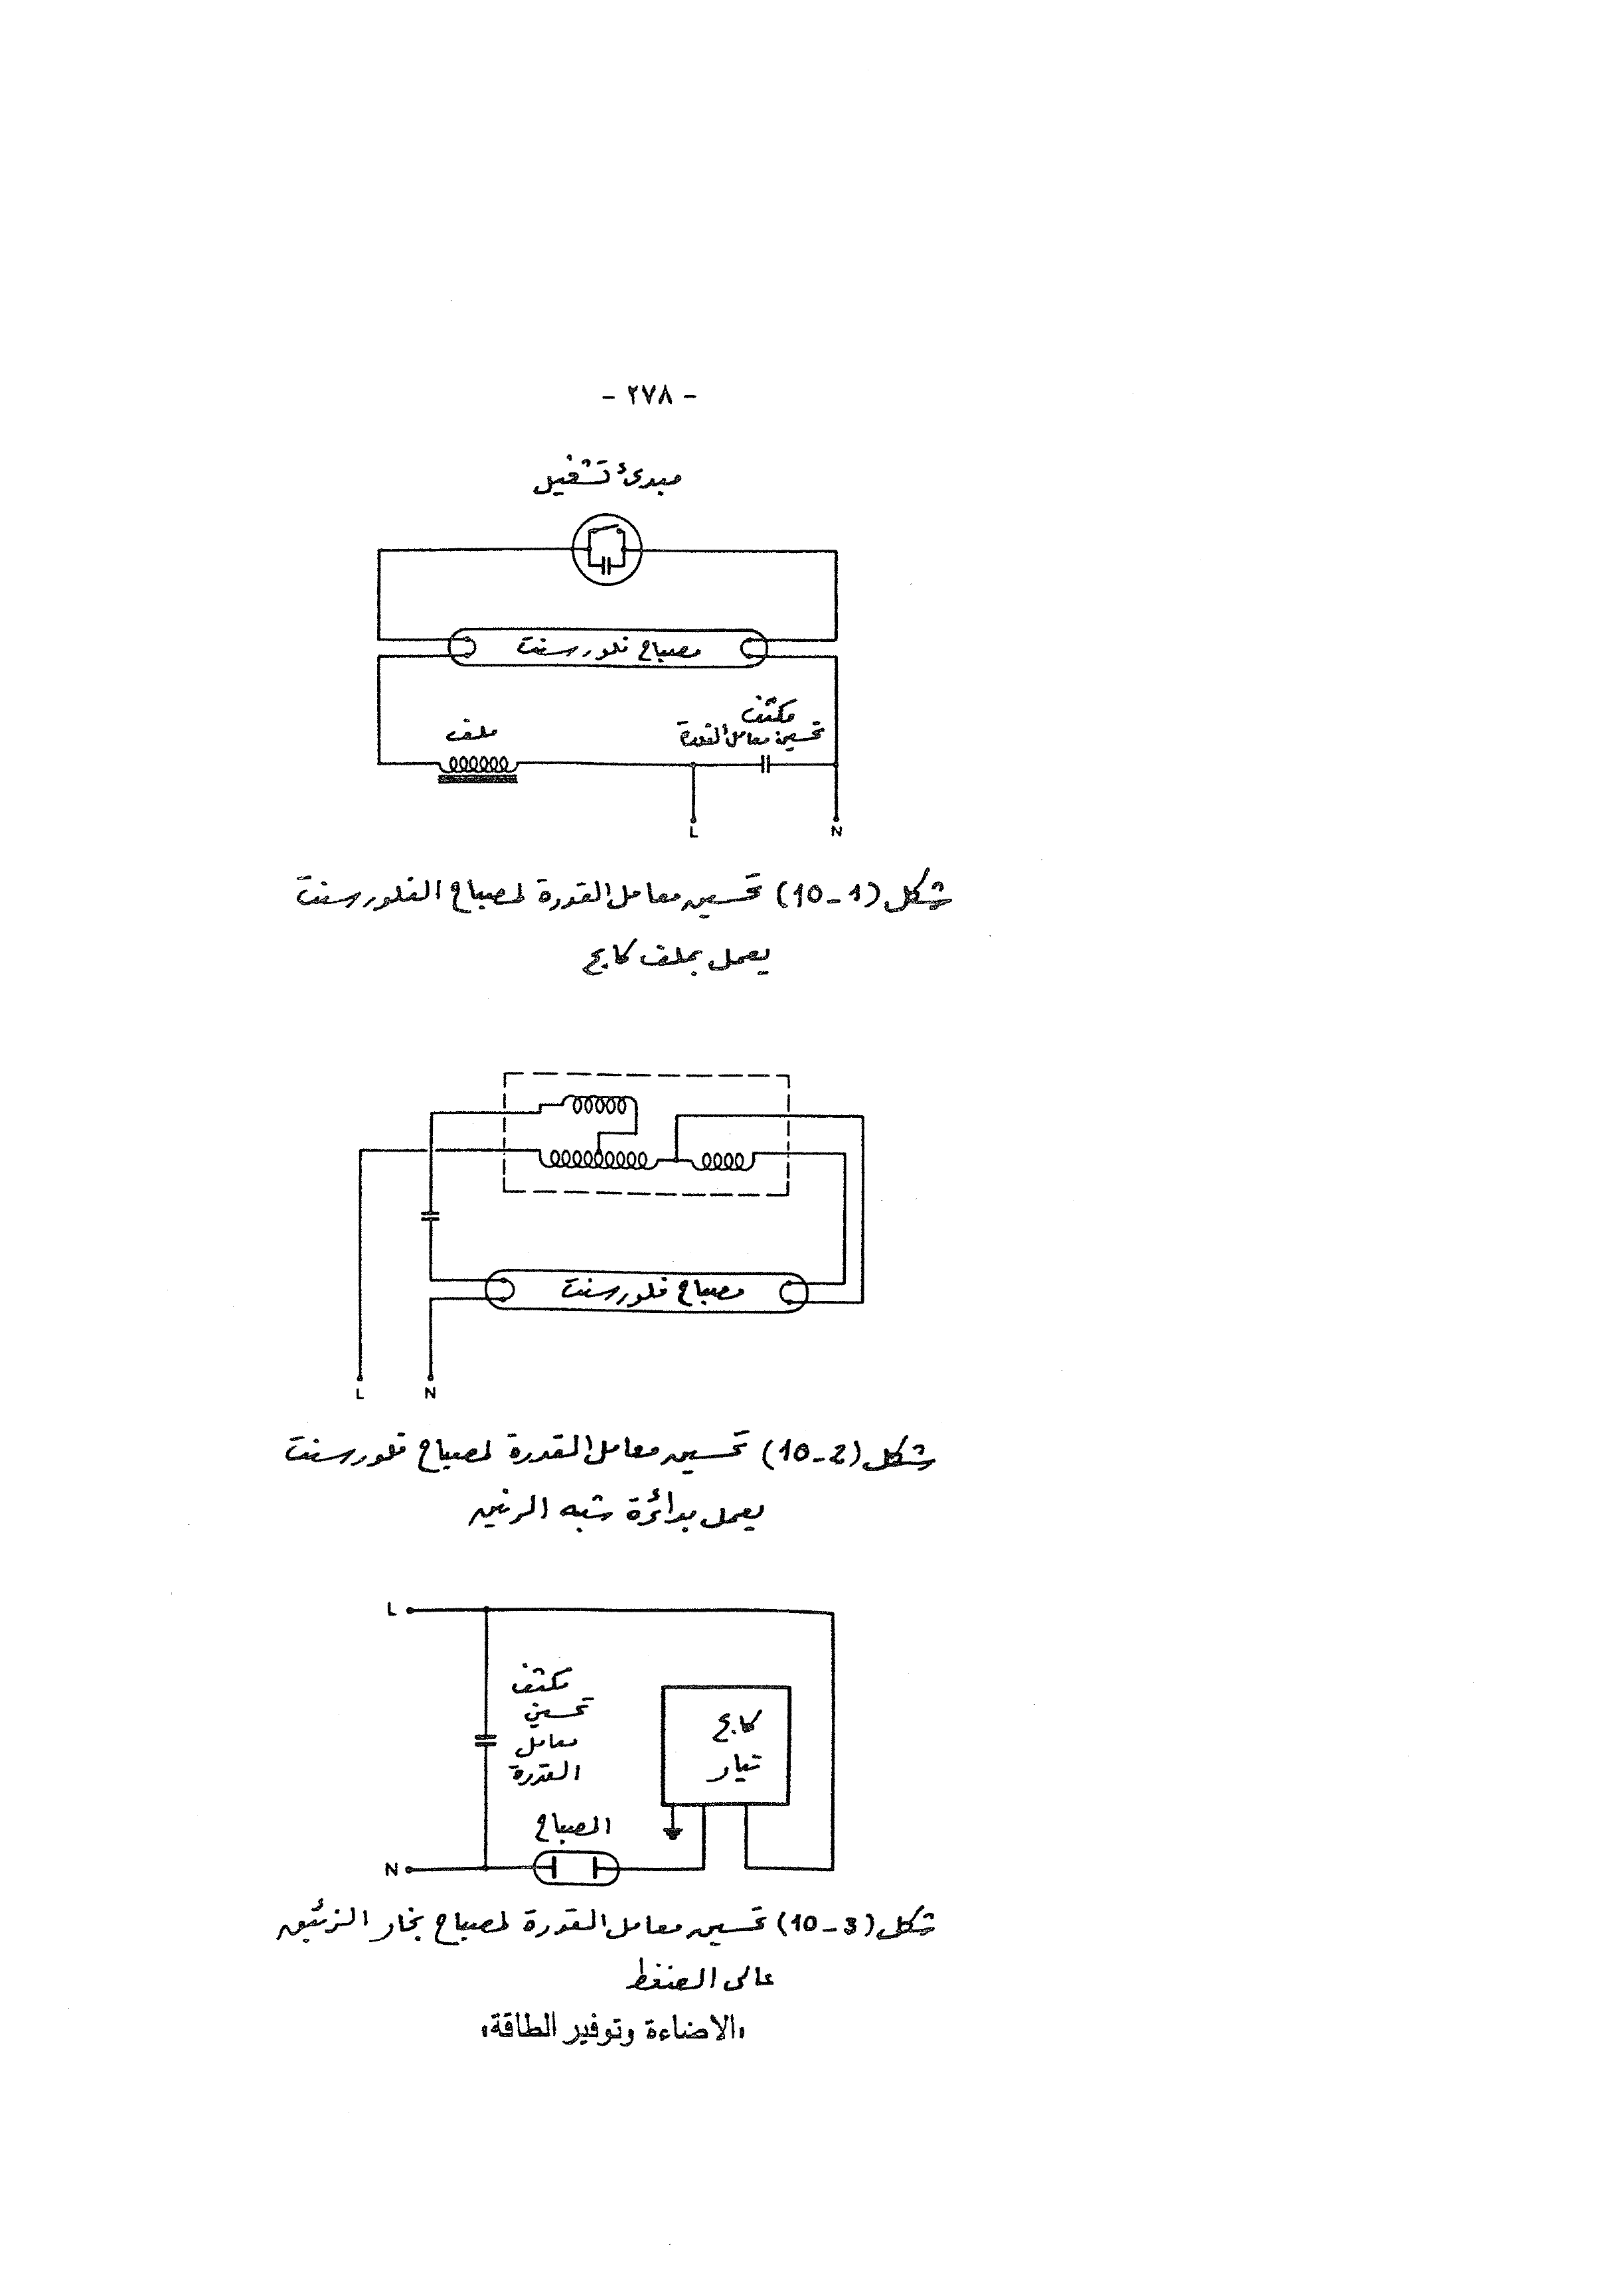 - ٢٧٨ -
مبدئ تشغيل
مصباح فلورسنت
مكثف
تحسين معامل القدرة
ملف
L
N
شكل (1-10) تحسين معامل القدرة لمصباح الفلورسنت
يعمل بملف كابح
مصباح فلورسنت
L
N
شكل (2-10) تحسين معامل القدرة لمصباح فلورسنت
يعمل بدائرة شبه الرنين
L
مكثف
تحسين
معامل
القدرة
كابح
تيار
المصباح
N
شكل (3-10) تحسين معامل القدرة لمصباح بخار الزئبق
عالى الضغط
«الاضاءة وتوفير الطاقة»